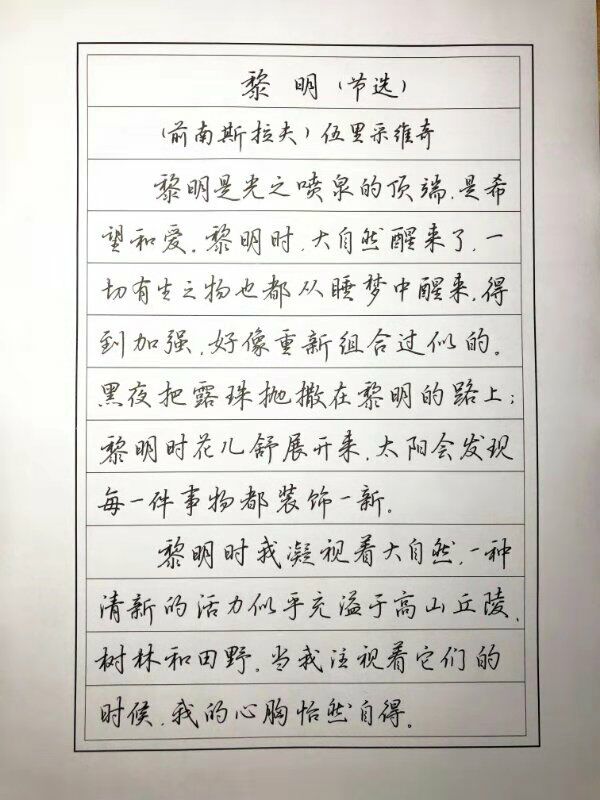 黎明(节选)
(前南斯拉夫)伍里采维奇
黎明是光之喷泉的顶端,是希
望和爱。黎明时,大自然醒来了,一
切有生之物也都从睡梦中醒来,得
到加强,好像重新组合过似的。
黑夜把露珠抛撒在黎明的路上;
黎明时花儿舒展开来,太阳会发现
每一件事物都装饰一新。
黎明时我凝视着大自然,一种
清新的活力似乎充溢于高山丘陵、
树林和田野。当我注视着它们的
时候,我的心胸怡然自得。